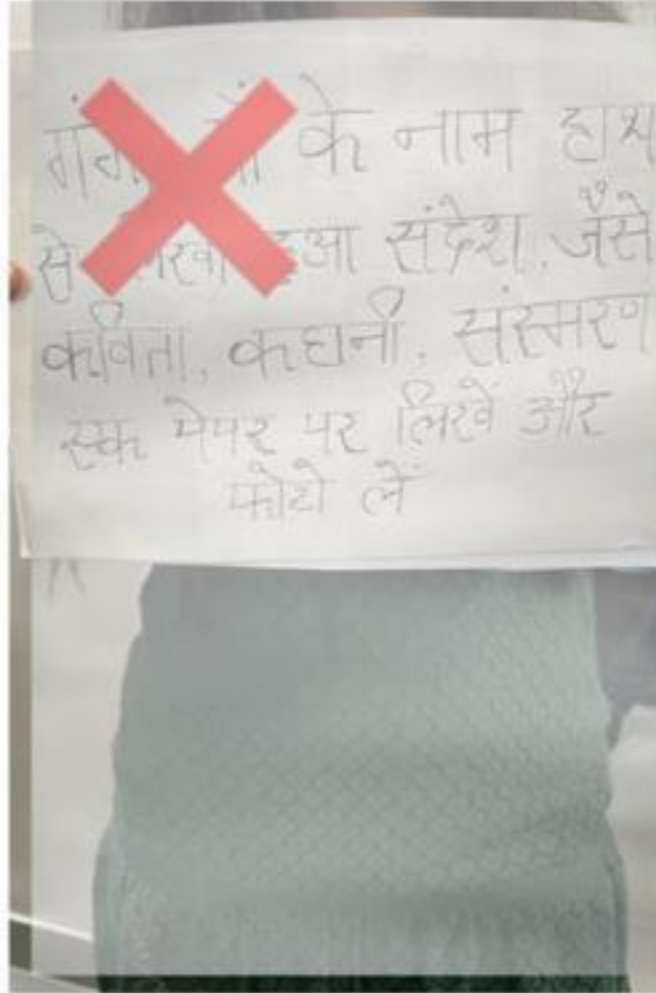 के नाम हाथ
से हुआ संदेश, जैसे
कविता, कहानी, संस्मरण
एक पेपर पर लिखें और
फोटो लें